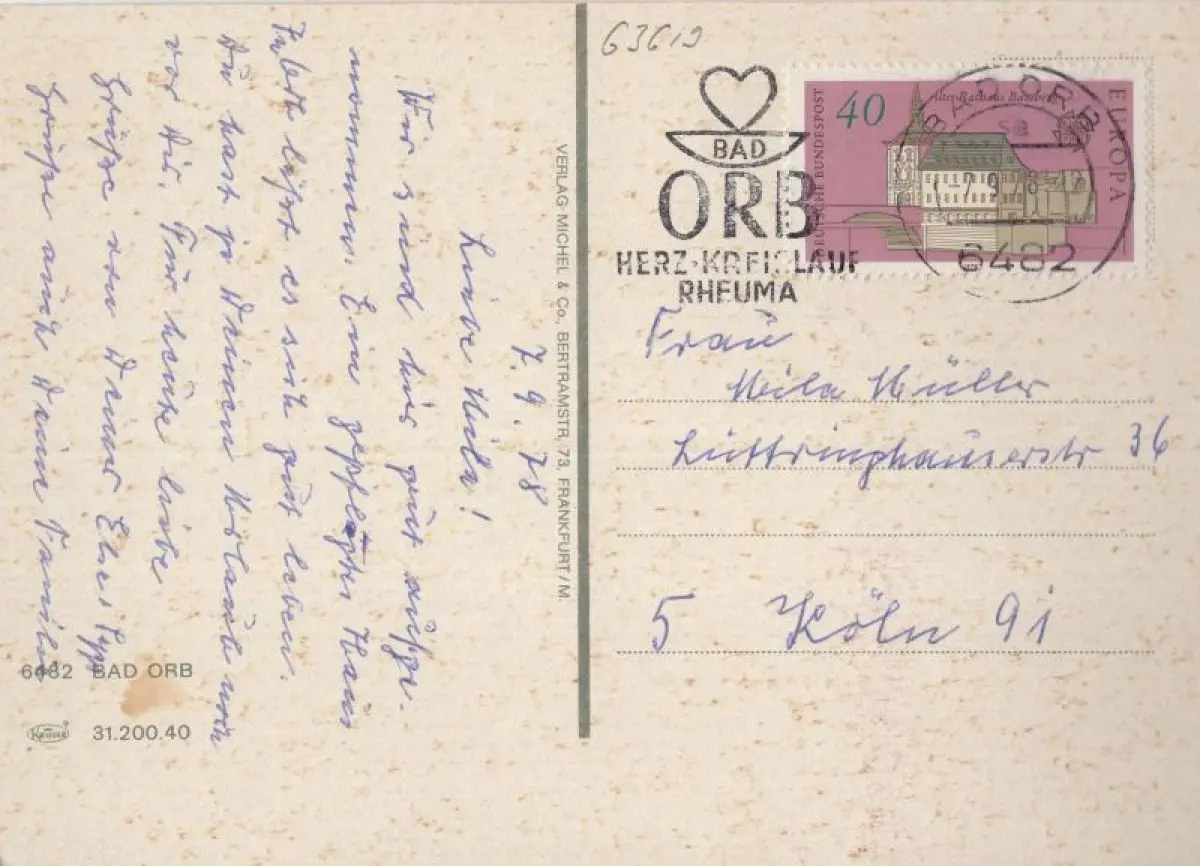 7. 9. 78
Liebe Mila!
Wir sind hier gut aufge-
nommen. Ein gepflegtes Haus.
läßt es sich gut leben.
Du hast ja Deinen Urlaub noch
vor Dir. Für heute liebe
Grüße von Deiner Else
Grüße auch Deine Familie
6482 BAD ORB
31.200.40
VERLAG MICHEL & Co., BERTRAMSTR. 73, FRANKFURT/M.
63619
BAD
ORB
HERZ-KREISLAUF
RHEUMA
DEUTSCHE BUNDESPOST
40
Altes Rathaus Bamberg
EUROPA
BAD ORB
6482
Frau
Mila Müller
Lüttringhauserstr 36
5 Köln 91